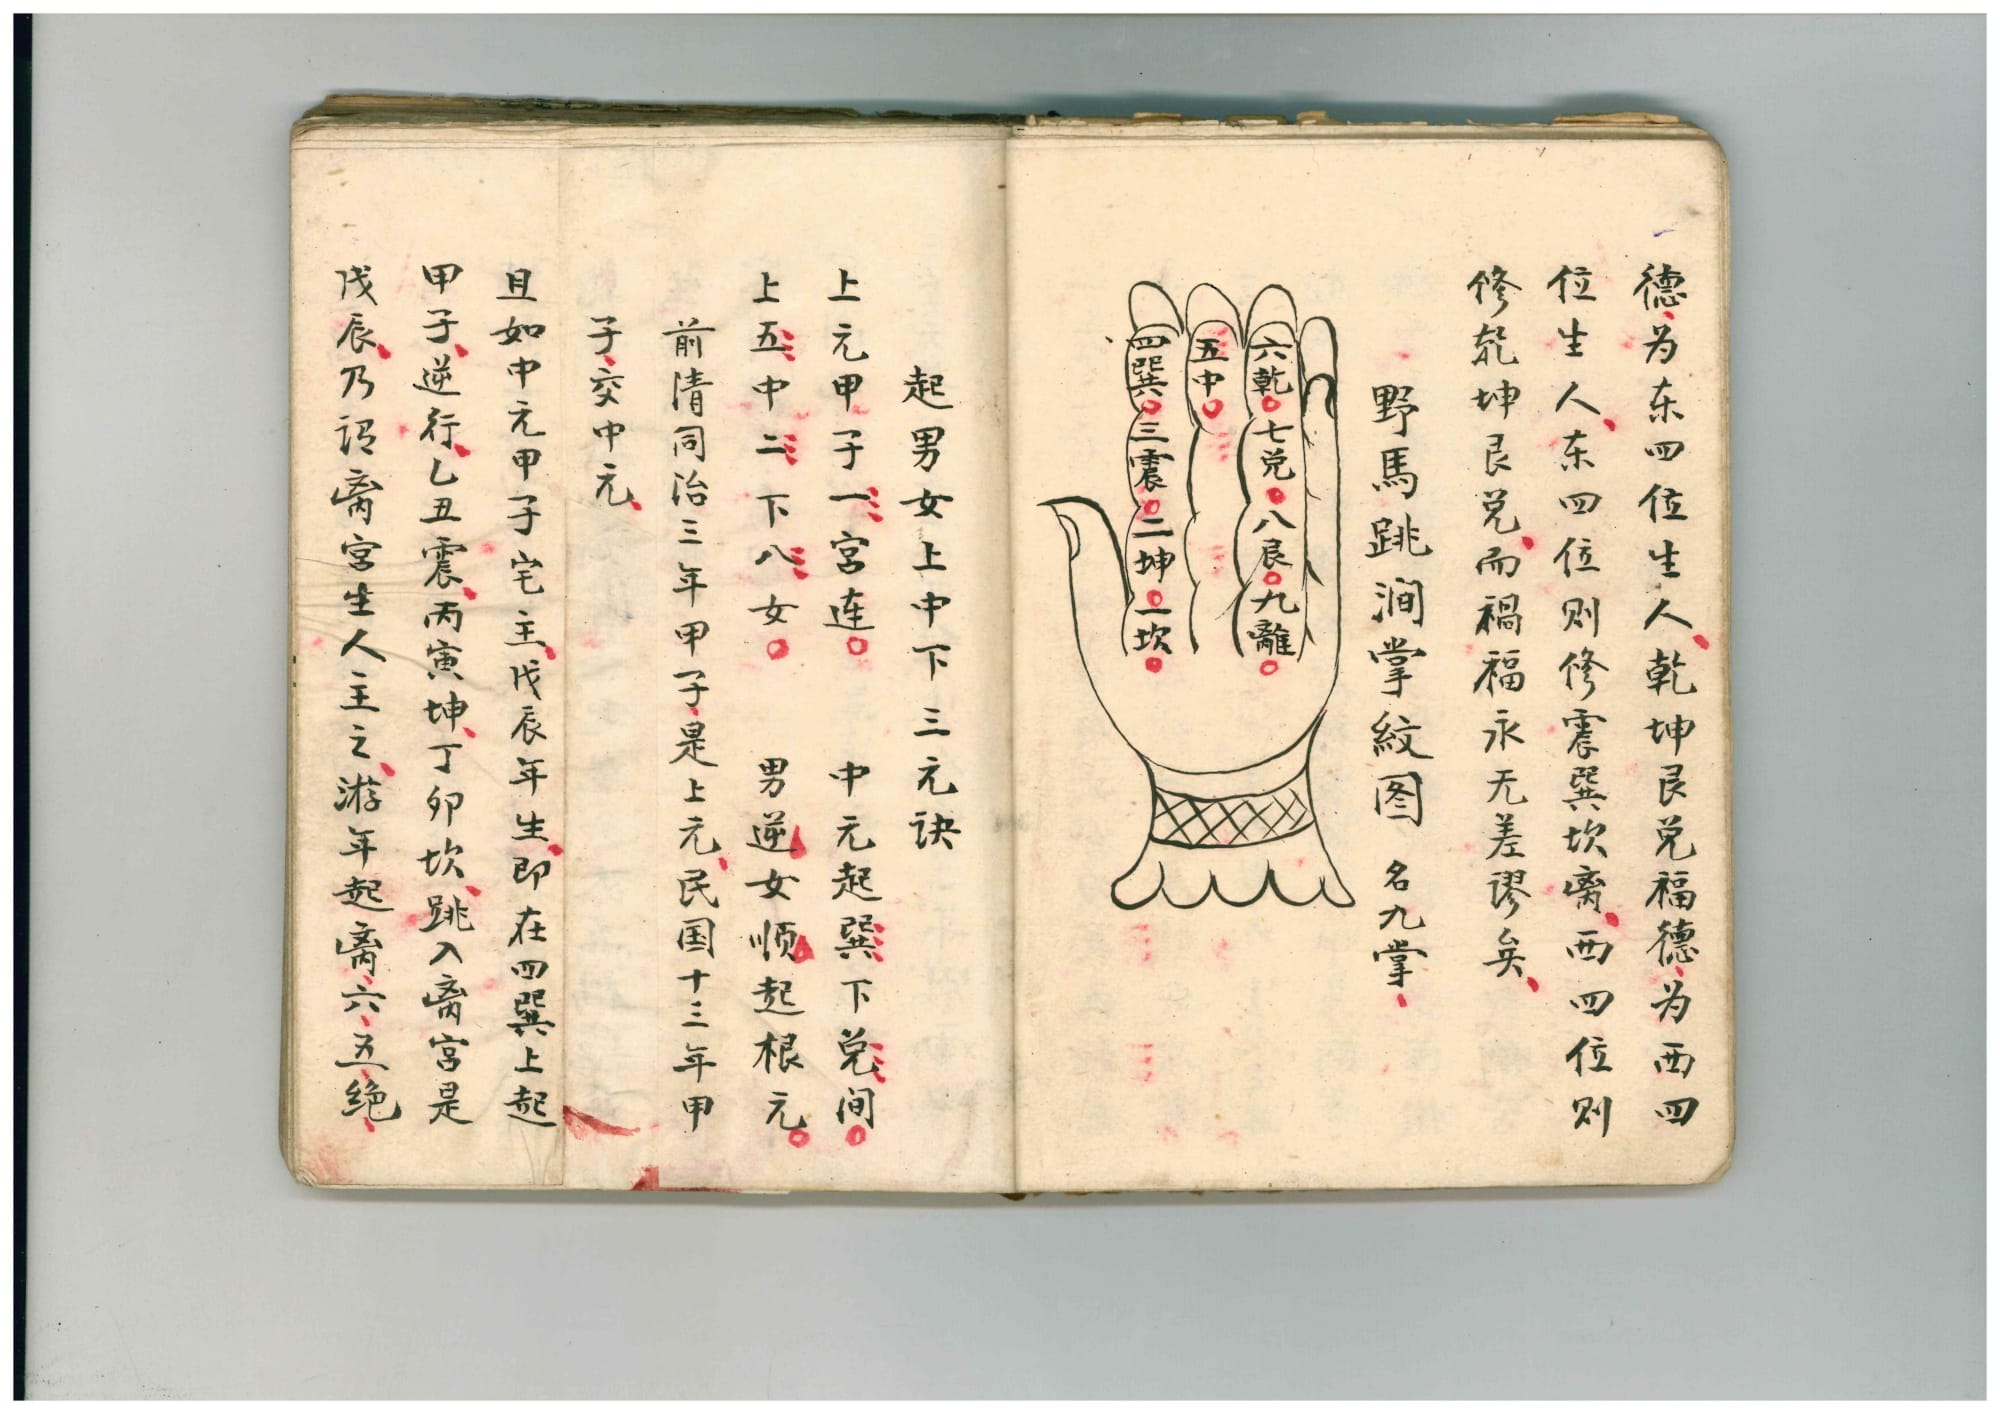 德、为东四位生人、乾坤艮兑福德、为西四
位生人、东四位则修震巽坎离、西四位则
修乾坤艮兑、而祸福永无差谬矣、
野馬跳涧掌紋图 名九掌、
六乾。七兑。八艮。九離。
五中。
四巽。三震。二坤。一坎。
起男女上中下三元诀
上元甲子一宫连。 中元起巽下兑间。
上五中二下八女。 男逆女顺起根元。
前清同治三年甲子、是上元、民国十三年甲
子、交中元、
且如中元甲子宅主、戊辰年生、即在四巽上起
甲子、逆行、乙丑震、丙寅坤、丁卯坎、跳入离宫是
戊辰、乃谓离宫生人主之、游年起离、六、五、绝、